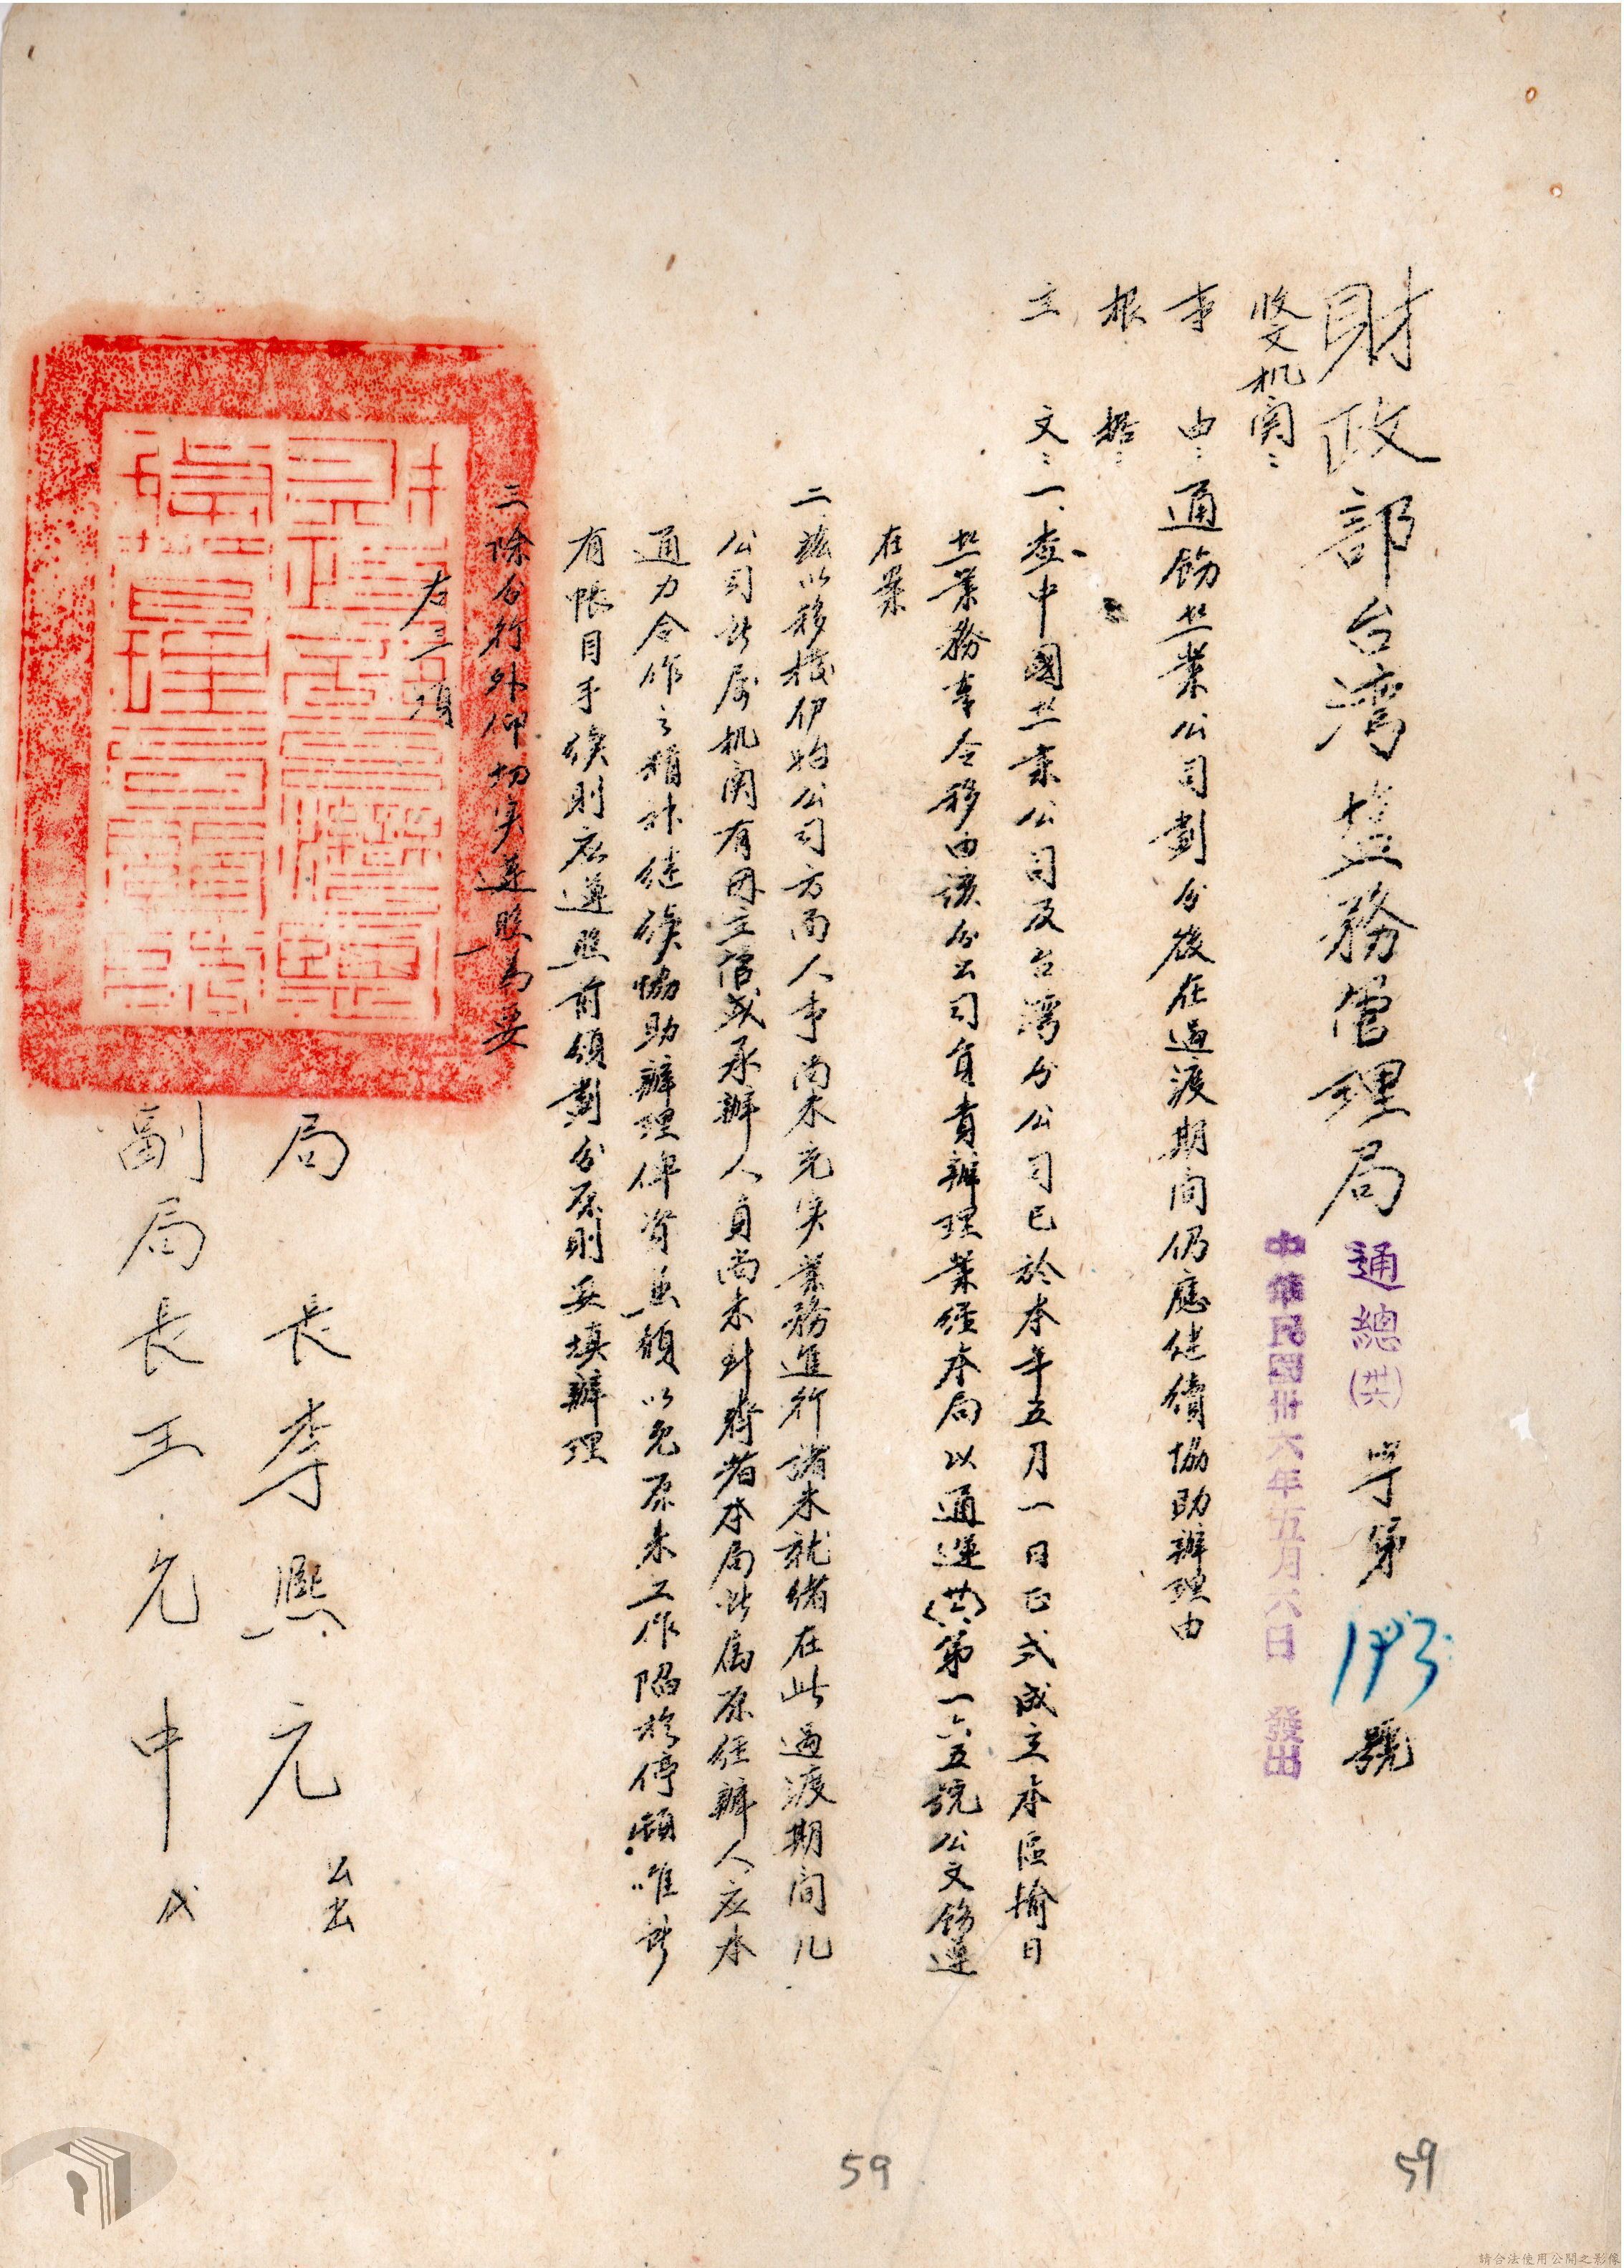 財政部台湾盐務管理局 通總(卅六)字第193號
中華民國卅六年五月六日 發出
收文机関：
事由：通飭盐業公司劃分後在過渡期间仍應继續協助辦理由
根据：
主文：一、查中國盐業公司及台湾分公司已於本年五月一日正式成立本區揄日
盐業務事全移由該分公司負責辦理業經本局以通運(卅六)第一六五號公文飭遵
在案
二、茲以移接伊始公司方面人事尚未充実業務進行诸未就緒在此過渡期間凡
公司所属机関有毋主管或承辦人員尚未到齊者本局所属原任辦人应本
通力合作之精神继续協助辦理俾資兼顧以免原来工作陷於停頓唯所
有帐目手续則应遵照前頒劃分原則妥填辦理
三、除分行外仰切实遵照為要
右三項
局長李熙元 公出
副局長王允中 代
59
59
請合法使用公開之影像